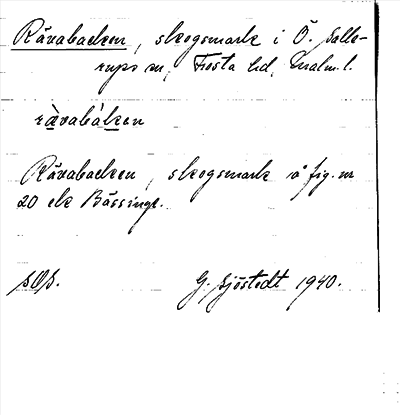 Rävabacken, skogsmark i Ö. Salle-
rups sn, Frosta hd, Malm. l.
rävabáken
Rävabacken, skogsmark å fig. nr
20 ek Bässinge.
SOS.
G. Sjöstedt 1940.